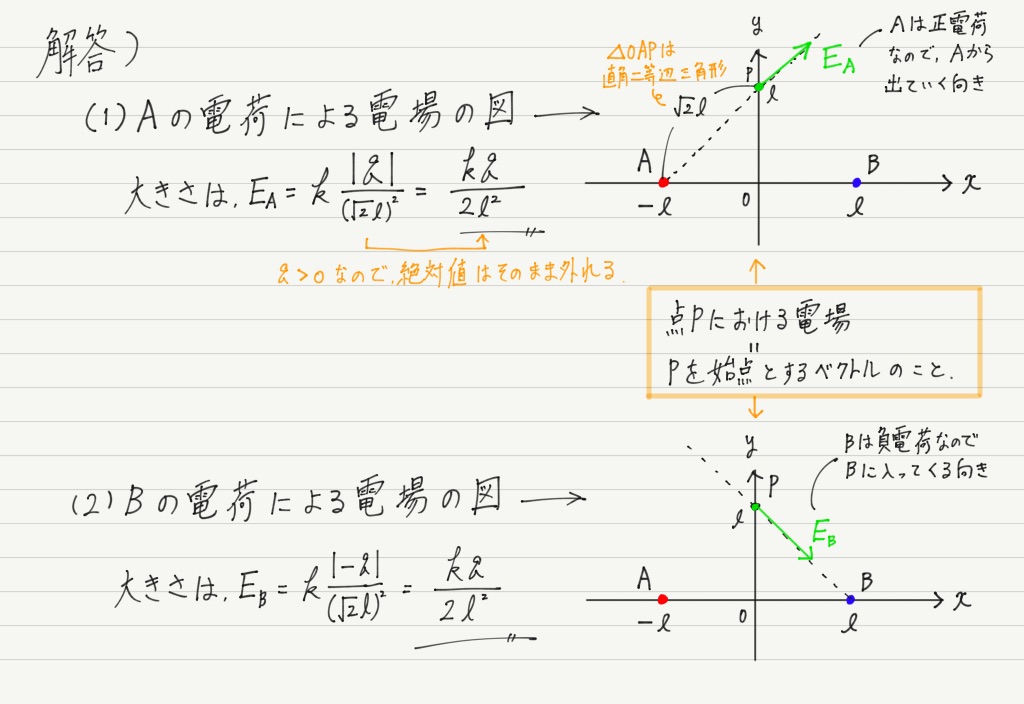 解答)
(1) Aの電荷による電場の図 →
大きさは, E_A = k |q|/(√2 l)² = kq/2l²
q>0 なので, 絶対値はそのまま外れる.
△OAPは
直角二等辺三角形
√2 l
y
P
l
E_A
Aは正電荷
なので, Aから
出ていく向き
A
B
-l
0
l
x
点Pにおける電場
=
Pを始点とするベクトルのこと.
(2) Bの電荷による電場の図 →
大きさは, E_B = k |-q|/(√2 l)² = kq/2l²
y
P
l
E_B
Bは負電荷なので
Bに入ってくる向き
A
B
-l
0
l
x